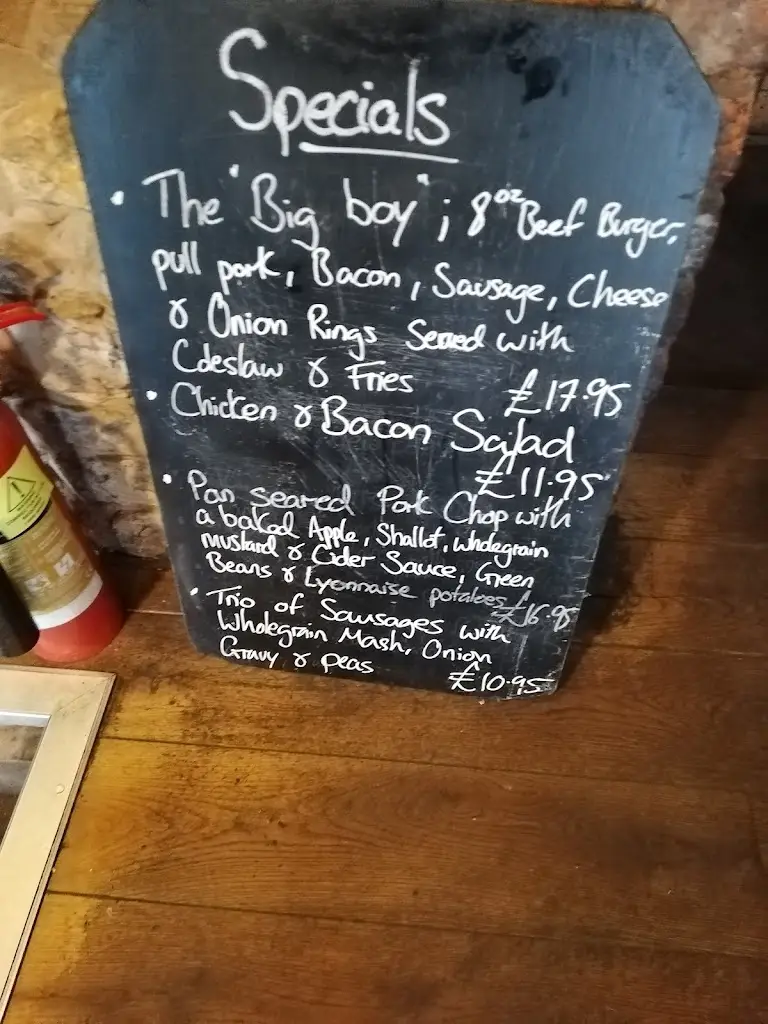 Specials
• The "Big boy" ; 8oz Beef Burger,
pull pork, Bacon, Sausage, Cheese
& Onion Rings Served with
Coleslaw & Fries £17.95
• Chicken & Bacon Salad
£11.95
• Pan seared Pork Chop with
a baked Apple, Shallot, wholegrain
mustard & Cider Sauce, Green
Beans & Lyonnaise potatoes £16.95
• Trio of Sausages with
Wholegrain Mash, Onion
Gravy & peas £10.95